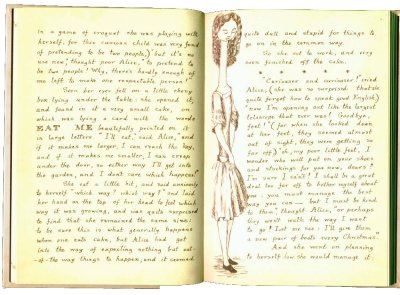 in a game of croquet she was playing with
herself, for this curious child was very fond
of pretending to be two people,) "but it's no
use now," thought poor Alice, "to pretend to
be two people! Why, there's hardly enough of
me left to make one respectable person!"
Soon her eyes fell on a little ebony
box lying under the table: she opened it,
and found in it a very small cake, on
which was lying a card with the words
EAT ME beautifully printed on it
in large letters. "I'll eat," said Alice, "and
if it makes me larger, I can reach the key,
and if it makes me smaller, I can creep
under the door, so either way I'll get into
the garden, and I don't care which happens!"
She eat a little bit, and said anxiously
to herself "which way? which way?" and laid
her hand on the top of her head to feel which
way it was growing, and was quite surprised
to find that she remained the same size:
to be sure this is what generally happens
when one eats cake, but Alice had got
into the way of expecting nothing but out-
-of-the way things to happen, and it seemed
quite dull and stupid for things to
go on in the common way.
So she set to work, and very
soon finished off the cake.
* * * * * *
"Curiouser and curiouser!" cried
Alice, (she was so surprised that she
quite forgot how to speak good English,)
"now I'm opening out like the largest
telescope that ever was! Goodbye,
feet!" (for when she looked down
at her feet, they seemed almost
out of sight, they were getting so
far off,) "oh, my poor little feet, I
wonder who will put on your shoes
and stockings for you now, dears?
I'm sure I can't! I shall be a great
deal too far off to bother myself about
you: you must manage the best
way you can — but I must be kind
to them," thought Alice, "or perhaps
they won't walk the way I want
to go! Let me see: I'll give them
a new pair of boots every Christmas."
And she went on planning
to herself how she would manage it